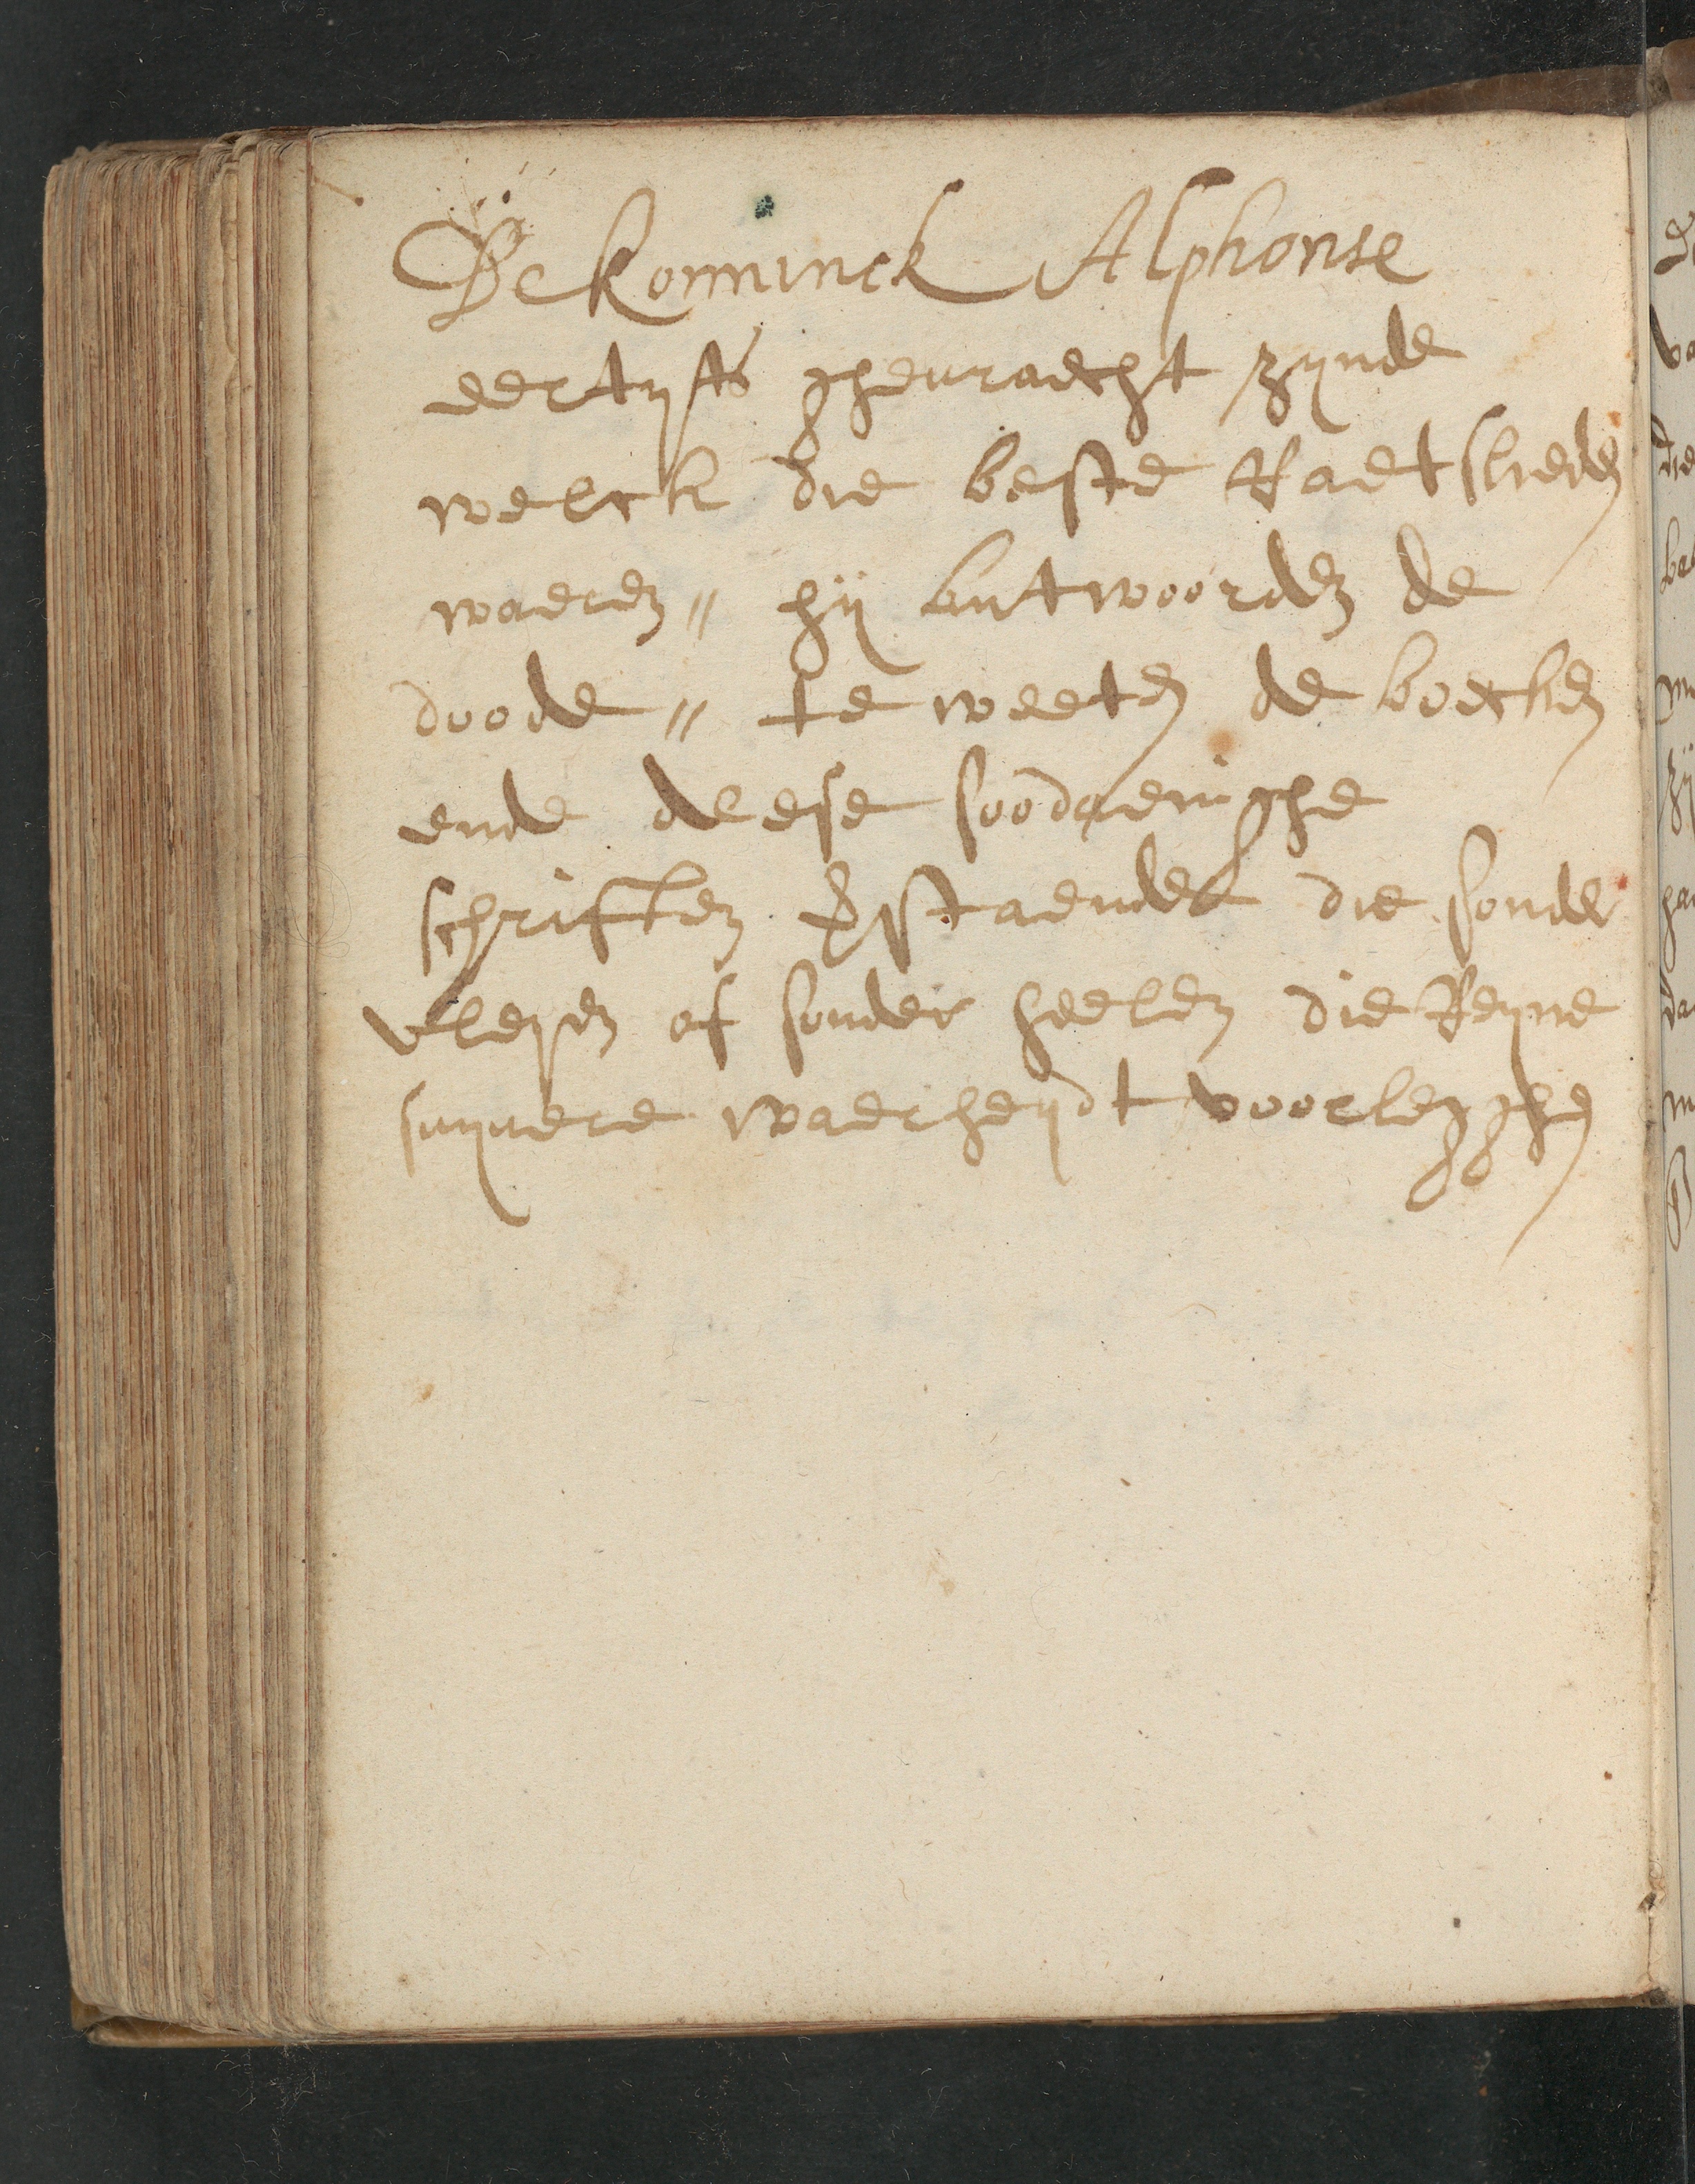 De konninck Alphonse
eertyts ghevraecht zynde
welck die beste Raetslieden
waeren " hij antwoorden de
doode " te weeten de boecken
ende deese soodaenighe
schriften verstaende die sonder
vleyen of sonder heelen die Reyne
suyvere waerheydt voorlegghen